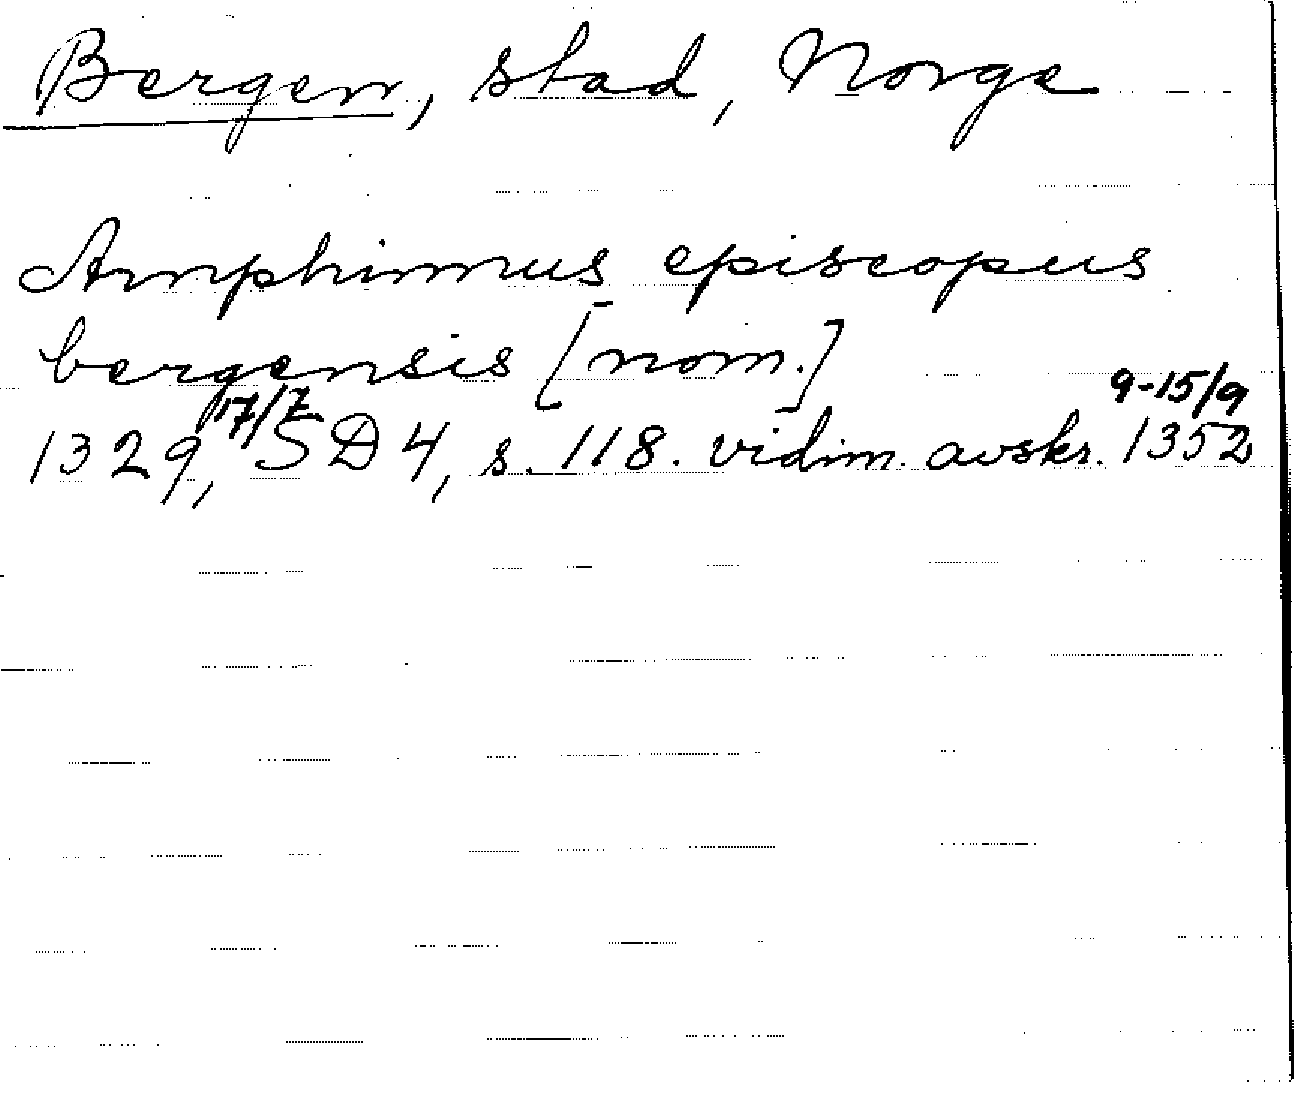 Bergen, stad, Norge
Amphinnus episcopus
bergensis [nom.]
1329, 17/7 SD 4, s. 118. vidim. avskr. 9-15/9 1352